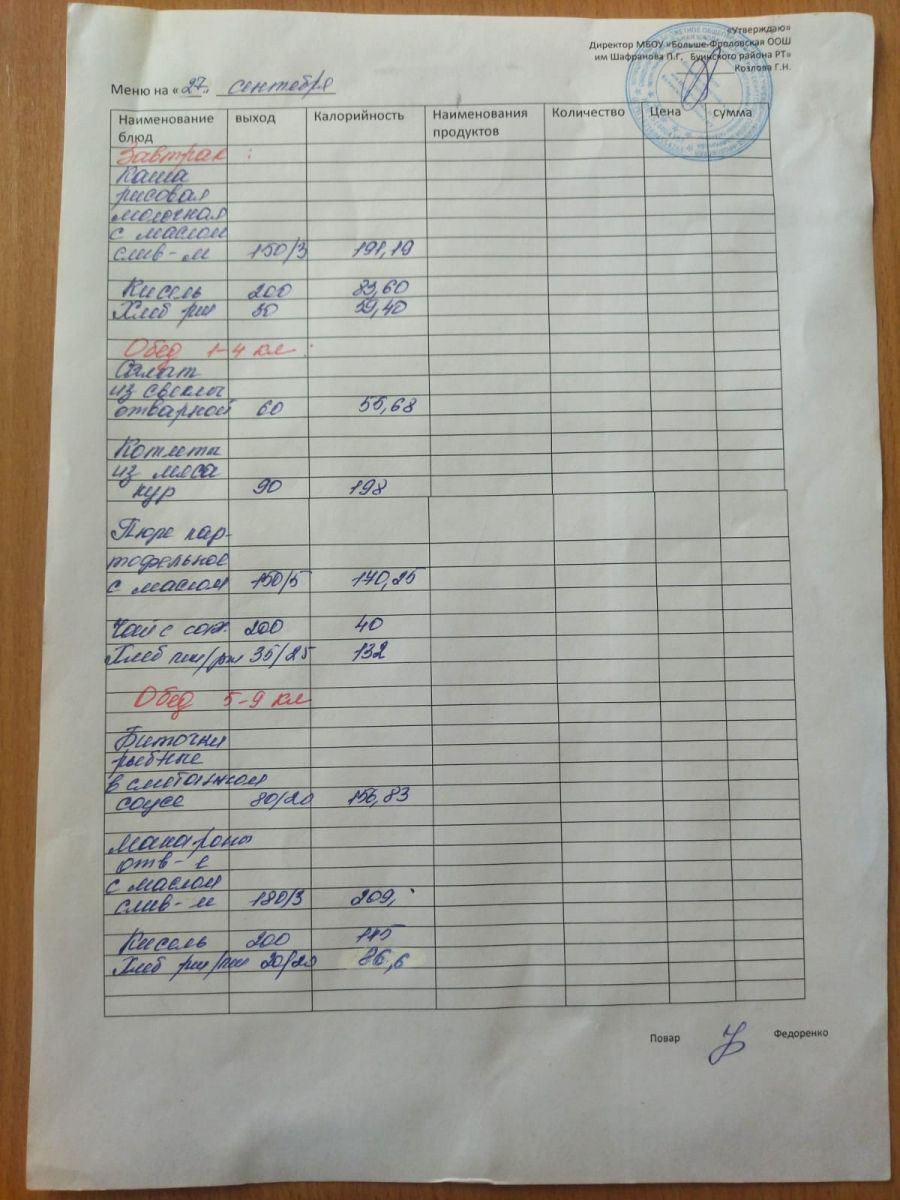 «Утверждаю»
Директор МБОУ «Больше-Фроловская ООШ
им Шафранова П.Г, Буинского района РТ»
Козлова Г.Н.
Меню на « 27 » сентября
Наименование блюд выход Калорийность Наименования продуктов Количество Цена сумма
Завтрак :
Каша
рисовая
молочная
с маслом
слив-м 150/3 191,19
Кисель 200 83,60
Хлеб рж 30 59,40
Обед 1-4 кл :
Салат
из свеклы
отварной 60 55,68
Котлета
из мяса
кур 90 198
Пюре кар-
тофельное
с маслом 150/5 140,25
Чай с сах. 200 40
Хлеб пш/рж 35/25 132
Обед 5-9 кл
Биточки
рыбные
в сметанном
соусе 80/20 156,83
Макароны
отв-е
с маслом
слив-м 180/3 209,
Кисель 200 115
Хлеб рж/пш 20/20 86,6
Повар Федоренко